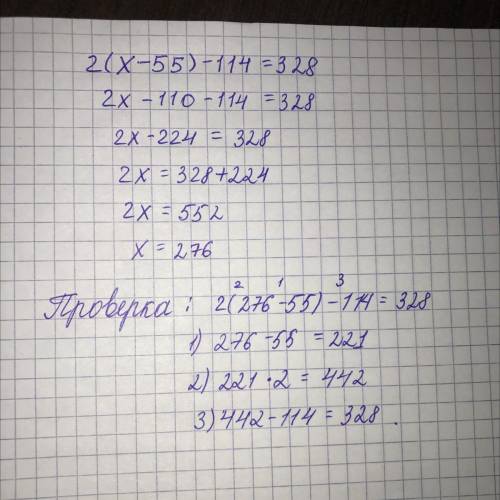 2(x-55)-114=328
2x-110-114=328
2x-224=328
2x=328+224
2x=552
x=276
2 1 3
Проверка: 2(276-55)-114=328
1) 276-55=221
2) 221·2=442
3) 442-114=328.